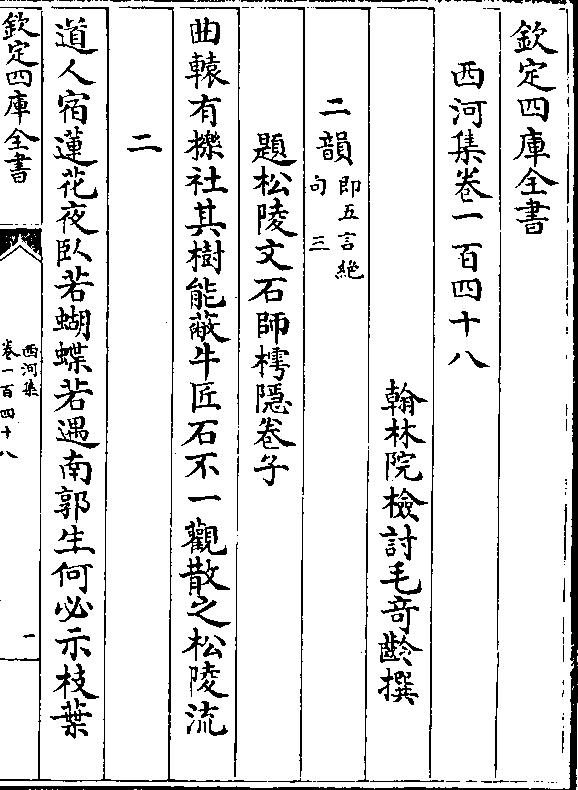 欽定四庫全書
西河集卷一百四十八
翰林院檢討毛奇齡撰
二韻即五言絶句三
題松陵文石師樗隱卷子
曲轅有擽社其樹能蔽牛匠石不一觀散之松陵流
二
道人宿蓮花夜臥若蝴蝶若遇南郭生何必示枝葉
欽定四庫全書
西河集
卷一百四十八
一